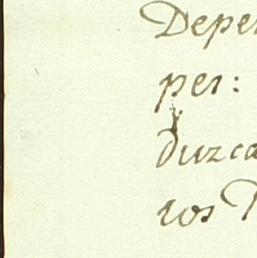 Depe
per:
duzca
ros